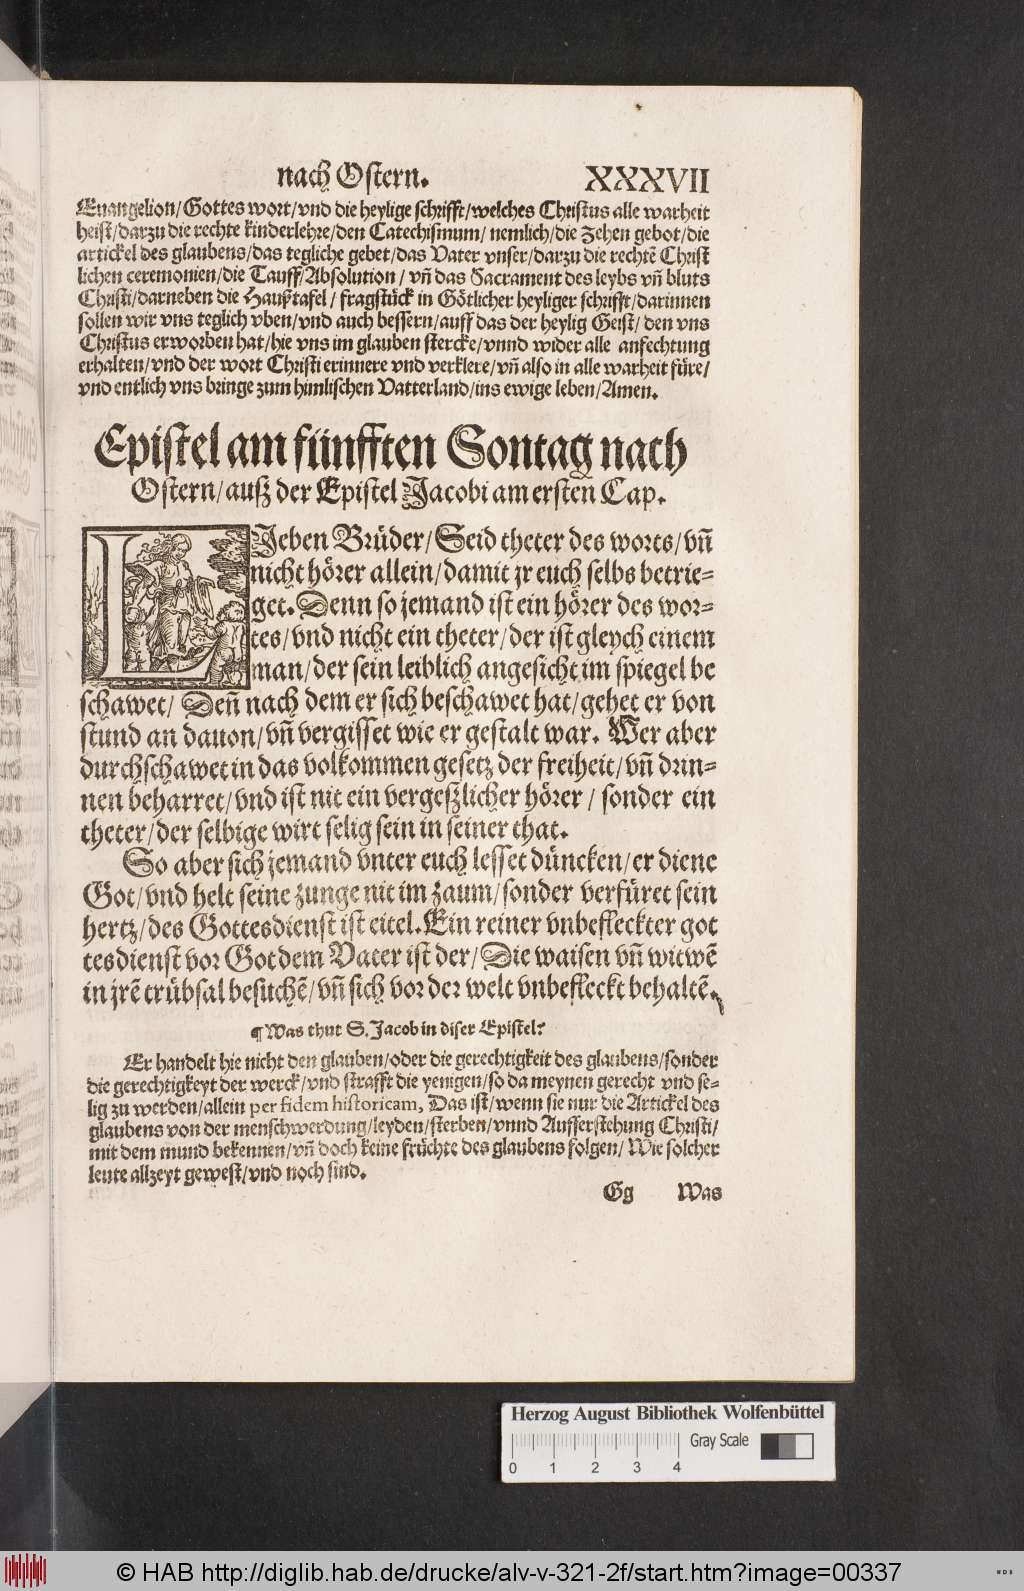 nach Ostern. XXXVII
Euangelion/Gottes wort/vnd die heylige schrifft/welches Christus alle warheit
heist/darzu die rechte kinderlehre/den Catechismum/ nemlich/die Zehen gebot/die
artickel des glaubens/das tegliche gebet/das Vater vnser/darzu die rechtē Christ
lichen ceremonien/die Tauff/Absolution/ vñ das Sacrament des leybs vñ bluts
Christi/darneben die Haußtafel/ fragstück in Götlicher heyliger schrifft/darinnen
sollen wir vns teglich vben/vnd auch bessern/auff das der heylig Geist/ den vns
Christus erworben hat/hie vns im glauben stercke/vnnd wider alle anfechtung
erhalten/vnd der wort Christi erinnere vnd verklere/vñ also in alle warheit füre/
vnd entlich vns bringe zum himlischen Vatterland/ins ewige leben/Amen.
Epistel am fünfften Sontag nach
Ostern/auß der Epistel Jacobi am ersten Cap.
LJeben Brüder/Seid theter des worts/vñ
nicht hörer allein/damit jr euch selbs betrie-
get. Denn so jemand ist ein hörer des wor-
tes/vnd nicht ein theter/der ist gleych einem
man/der sein leiblich angesicht im spiegel be
schawet/ Deñ nach dem er sich beschawet hat/gehet er von
stund an dauon/vñ vergisset wie er gestalt war. Wer aber
durchschawet in das volkommen gesetz der freiheit/vñ drin-
nen beharret/vnd ist nit ein vergeßlicher hörer/ sonder ein
theter/der selbige wirt selig sein in seiner that.
So aber sich jemand vnter euch lesset düncken/er diene
Got/vnd helt seine zunge nit im zaum/sonder verfüret sein
hertz/des Gottesdienst ist eitel. Ein reiner vnbefleckter got
tesdienst vor Got dem Vater ist der/ Die waisen vñ witwē
in jrē trübsal besuchē/vñ sich vor der welt vnbefleckt behaltē.
¶ Was thut S. Jacob in diser Epistel?
Er handelt hie nicht den glauben/oder die gerechtigkeit des glaubens/sonder
die gerechtigkeyt der werck/vnd strafft die yenigen/so da meynen gerecht vnd se-
lig zu werden/allein per fidem historicam, Das ist/wenn sie nur die Artickel des
glaubens von der menschwerdung/leyden/sterben/vnnd Aufferstehung Christi/
mit dem mund bekennen/vñ doch keine früchte des glaubens folgen/ Wie solcher
leute allzeyt gewest/vnd noch sind.
Gg Was
Herzog August Bibliothek Wolfenbüttel
Gray Scale
0 1 2 3 4
© HAB http://diglib.hab.de/drucke/alv-v-321-2f/start.htm?image=00337